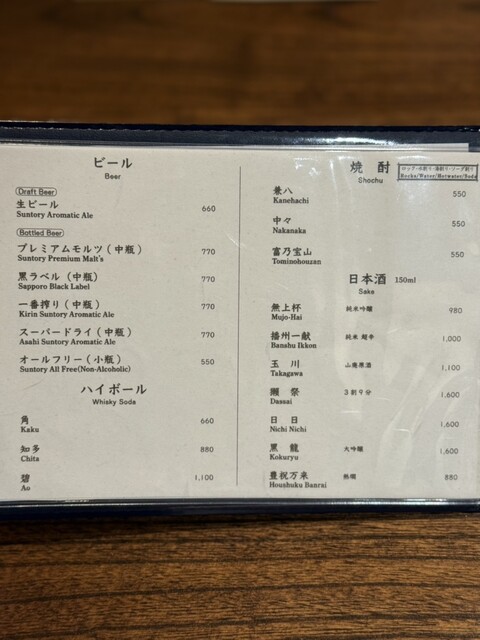 ビール
Beer
Draft Beer
生ビール 660
Suntory Aromatic Ale
Bottled Beer
プレミアムモルツ(中瓶) 770
Suntory Premium Malt's
黒ラベル(中瓶) 770
Sapporo Black Label
一番搾り(中瓶) 770
Kirin Suntory Aromatic Ale
スーパードライ(中瓶) 770
Asahi Suntory Aromatic Ale
オールフリー(小瓶) 550
Suntory All Free(Non-Alcoholic)
ハイボール
Whisky Soda
角 660
Kaku
知多 880
Chita
碧 1,100
Ao
焼酎 ロック・水割り・湯割り・ソーダ割り
Shochu Rocks/Water/Hotwater/Soda
兼八 550
Kanehachi
中々 550
Nakanaka
富乃宝山 550
Tominohouzan
日本酒 150ml
Sake
無上杯 純米吟醸 980
Mujo-Hai
播州一献 純米 超辛 1,000
Banshu Ikkon
玉川 山廃原酒 1,100
Takagawa
獺祭 3割9分 1,600
Dassai
日日 1,600
Nichi Nichi
黒龍 大吟醸 1,600
Kokuryu
豊祝万来 熱燗 880
Houshuku Banrai